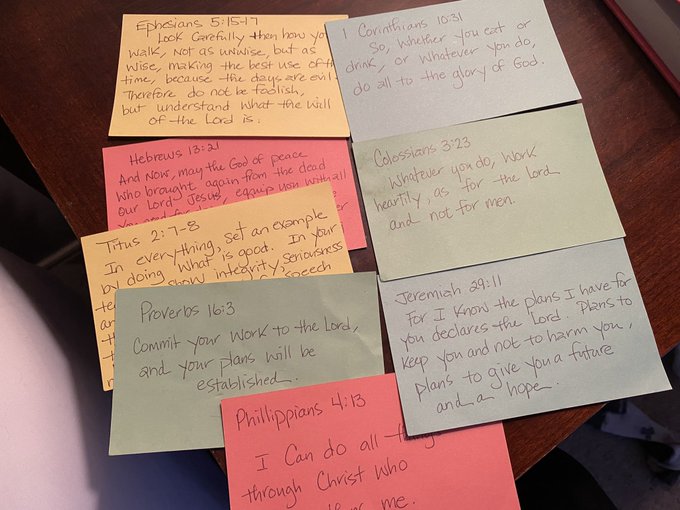 Ephesians 5:15-17
Look carefully then how you
walk, not as unwise, but as
wise, making the best use of the
time, because the days are evil
Therefore do not be foolish,
but understand what the will
of the Lord is.
1 Corinthians 10:31
So, whether you eat or
drink, or whatever you do,
do all to the glory of God.
Hebrews 13:21
And now, may the God of peace
who brought again from the dead
our Lord Jesus, equip you with all
Colossians 3:23
Whatever you do, work
heartily, as for the Lord
and not for men.
Titus 2:7-8
In everything, set an example
by doing what is good. In your
show integrity, seriousness
speech
Jeremiah 29:11
For I know the plans I have for
you declares the Lord. Plans to
keep you and not to harm you,
plans to give you a future
and a hope.
Proverbs 16:3
Commit your work to the Lord,
and your plans will be
established.
Phillippians 4:13
I can do all things
through Christ who
me.